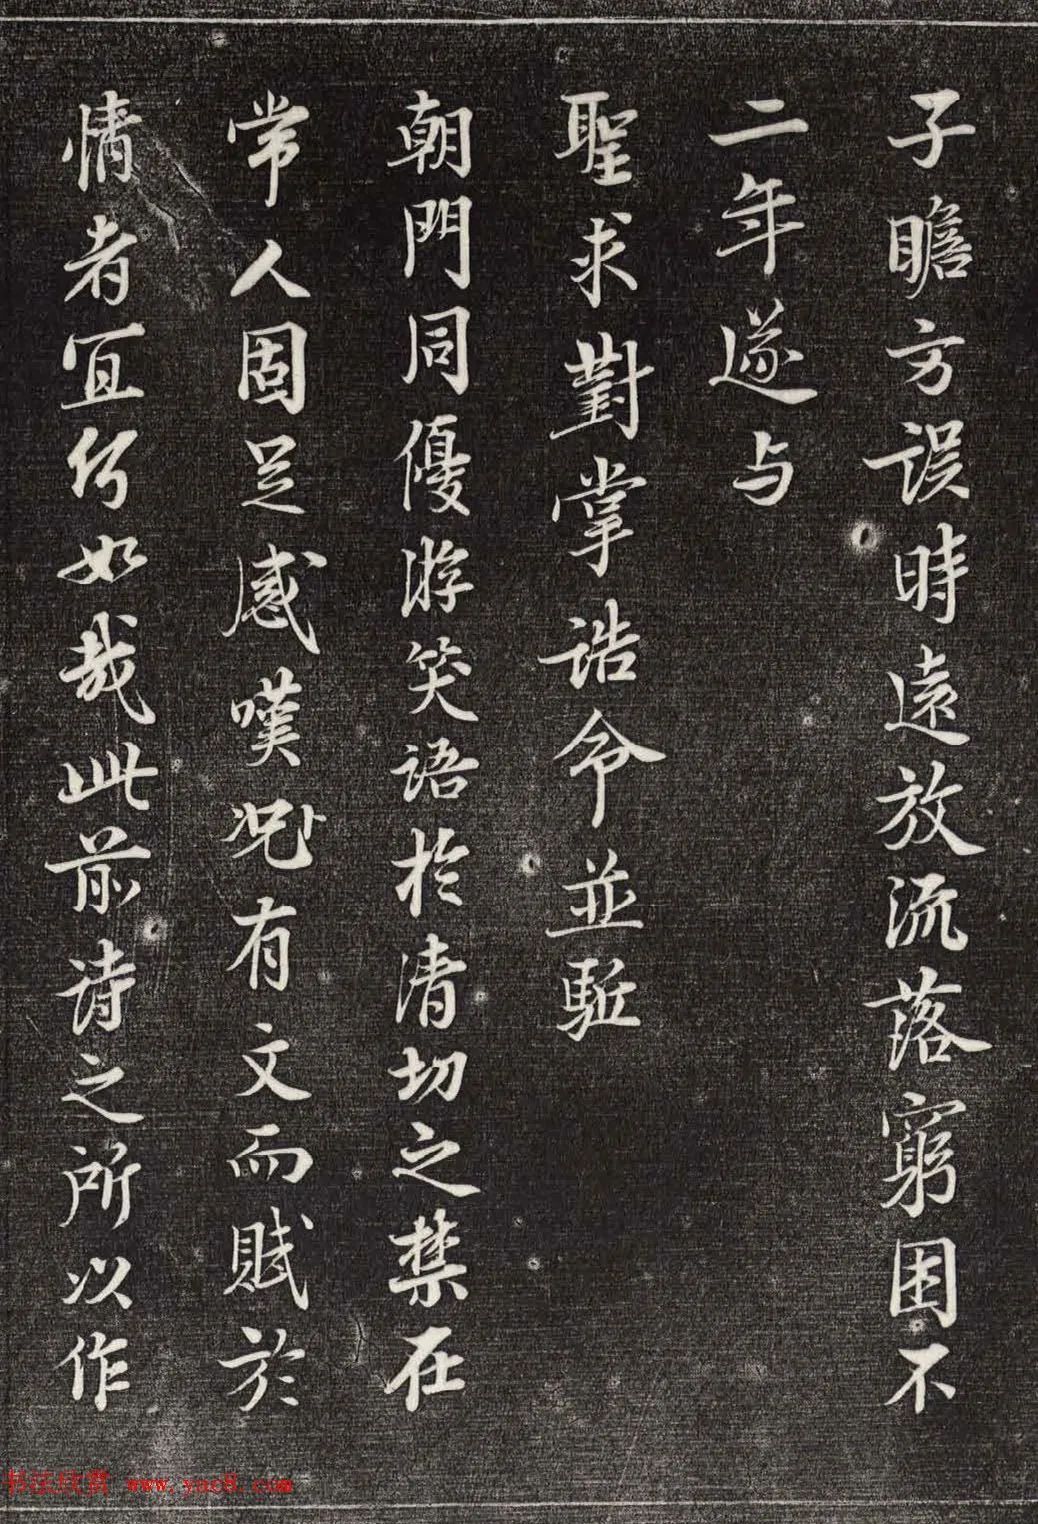 子瞻方误時遠放流落窮困不
二年遂与
聖求對掌誥命並駈
朝門同優游笑語於清切之禁在
常人固足感嘆况有文而賦於
情者宜何如哉此前诗之所以作
书法欣赏 www.yac8.com